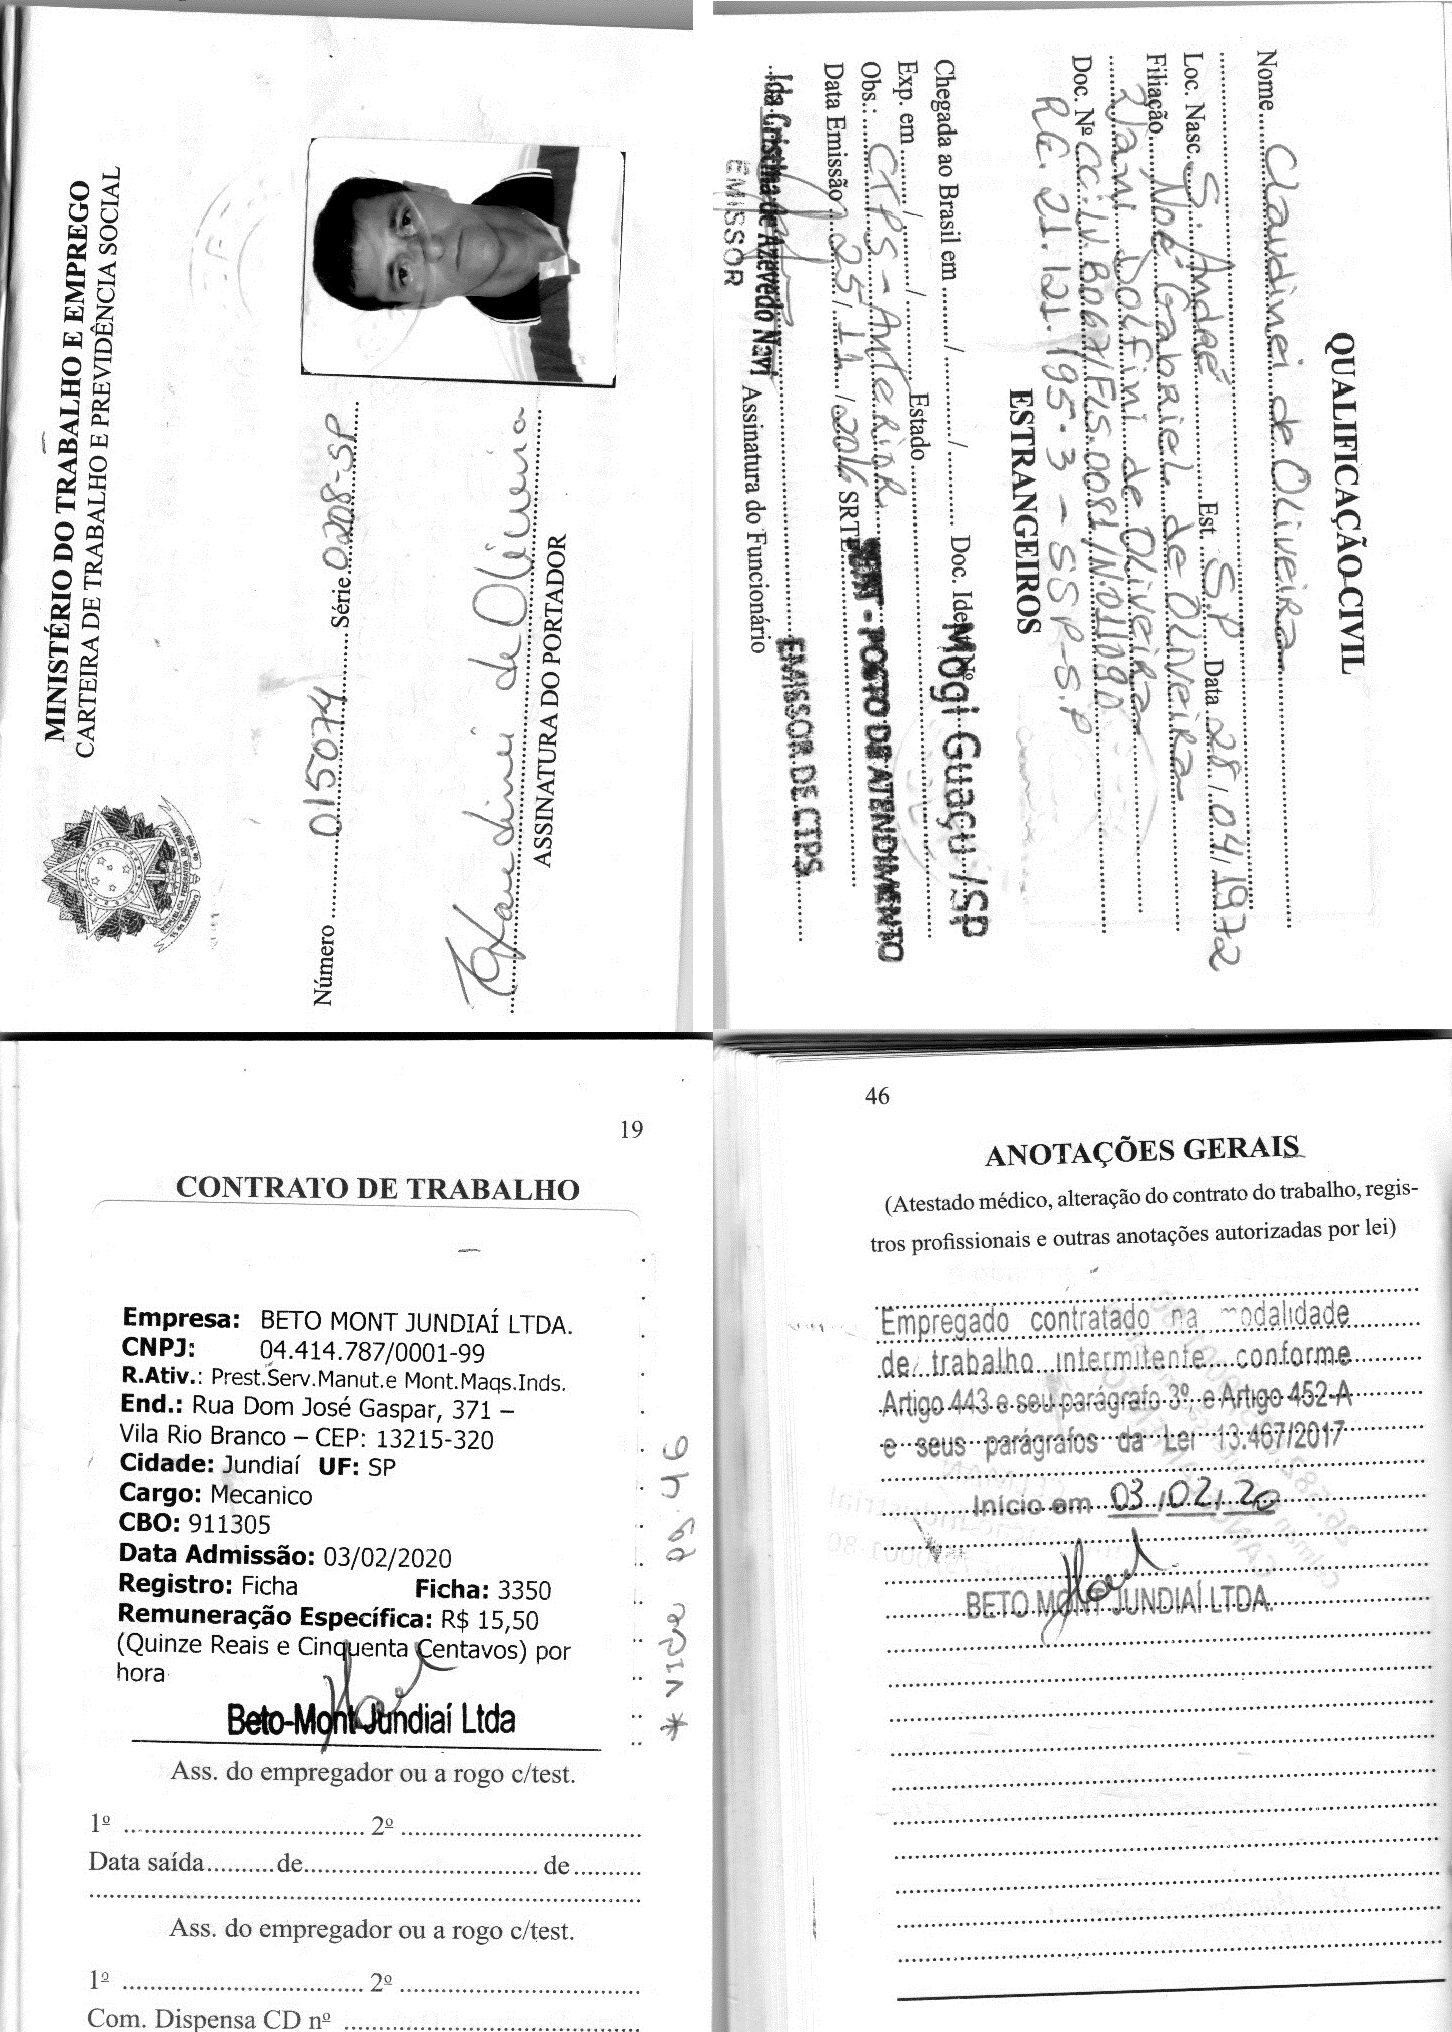 MINISTÉRIO DO TRABALHO E EMPREGO
CARTEIRA DE TRABALHO E PREVIDÊNCIA SOCIAL
Número 015074 Série 0208-SP
Claudinei de Oliveira
ASSINATURA DO PORTADOR
QUALIFICAÇÃO CIVIL
Nome Claudinei de Oliveira
Loc. Nasc. S. André Est. S.P Data 28/04/1972
Filiação Noé Gabriel de Oliveira
Dolfini de Oliveira
Doc. Nº CC.LV.B067/FLS.0081/N.011090
RG. 21.121.195-3 - SSP-S.P
ESTRANGEIROS
Chegada ao Brasil em / / Doc. Ident. Nº
Mogi Guaçu/SP
Exp. em / / Estado
Obs.: CTPS - Anterior
PAT - POSTO DE ATENDIMENTO
Data Emissão 25/11/2016 SRTE
EMISSOR DE CTPS
Ida Cristina de Azevedo Navi Assinatura do Funcionário
EMISSOR
19
CONTRATO DE TRABALHO
Empresa: BETO MONT JUNDIAÍ LTDA.
CNPJ: 04.414.787/0001-99
R.Ativ.: Prest.Serv.Manut.e Mont.Maqs.Inds.
End.: Rua Dom José Gaspar, 371 –
Vila Rio Branco – CEP: 13215-320
Cidade: Jundiaí UF: SP
Cargo: Mecanico
CBO: 911305
Data Admissão: 03/02/2020
Registro: Ficha Ficha: 3350
Remuneração Específica: R$ 15,50
(Quinze Reais e Cinquenta Centavos) por
hora
Beto-Mont Jundiaí Ltda
Ass. do empregador ou a rogo c/test.
1º 2º
Data saída de de
Ass. do empregador ou a rogo c/test.
1º 2º
Com. Dispensa CD nº
* VIDE pg. 46
46
ANOTAÇÕES GERAIS
(Atestado médico, alteração do contrato do trabalho, regis-
tros profissionais e outras anotações autorizadas por lei)
Empregado contratado na modalidade
de trabalho intermitente conforme
Artigo 443 e seu parágrafo 3º, e Artigo 452-A
e seus parágrafos da Lei 13.467/2017
Início em 03/02/20
BETO MONT JUNDIAÍ LTDA.